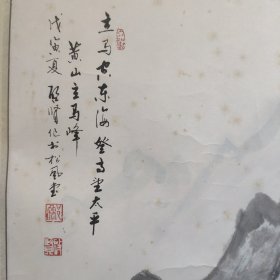 立马空东海登高望太平
黄山立马峰
戊寅夏启贤作于松风堂